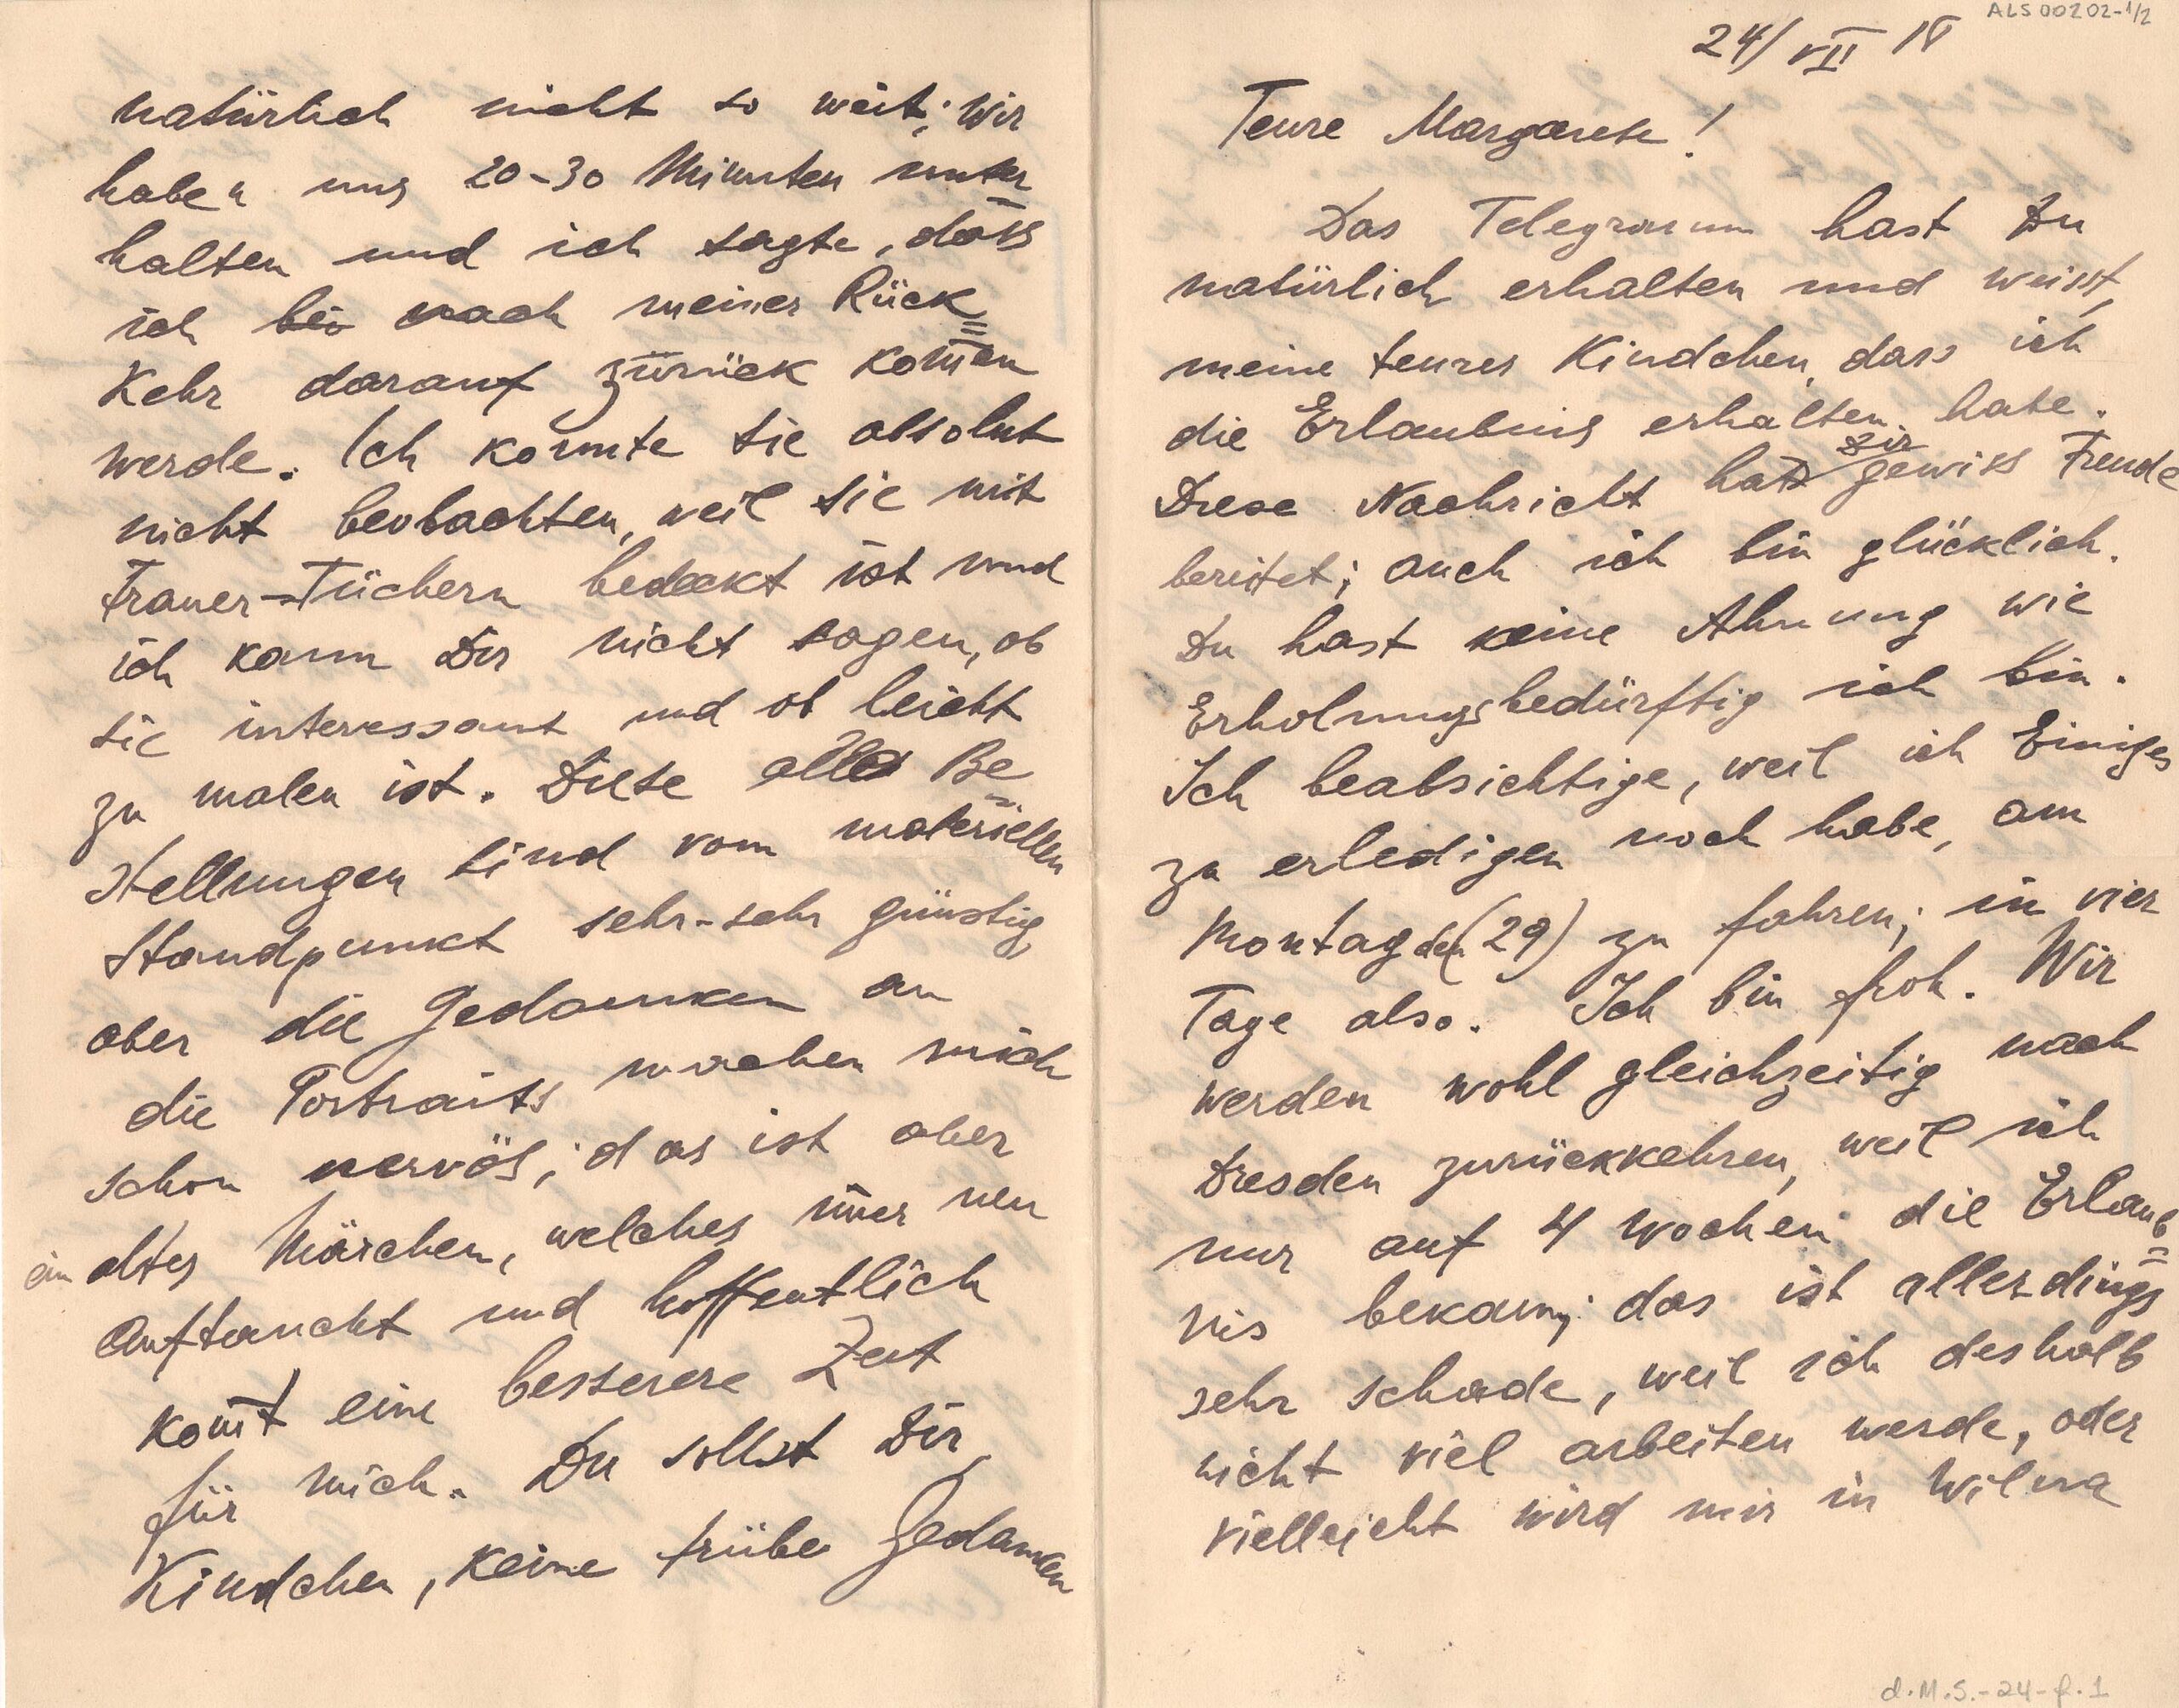 ALS 00202-1/2
24/VII 18
Teure Margarete!
Das Telegramm hast Du
natürlich erhalten und weisst,
meine teures Kindchen, dass ich
die Erlaubnis erhalten habe.
Diese Nachricht hat Dir gewiss Freude
bereitet; auch ich bin glücklich.
Du hast keine Ahnung wie
Erholungsbedürftig ich bin.
Ich beabsichtige, weil ich Einiges
zu erledigen noch habe, am
Montag den (29) zu fahren; in vier
Tage also. Ich bin froh. Wir
werden wohl gleichzeitig nach
Dresden zurückkehren, weil ich
nur auf 4 Wochen die Erlaub=
nis bekam; das ist allerdings
sehr schade, weil ich deshalb
nicht viel arbeiten werde, oder
vielleicht wird mir in Wilna
d.M.S.-24-f.1
natürlich nicht so weit; Wir
haben uns 20-30 Minuten unter
halten und ich sagte, dass
ich bei nach meiner Rück=
Kehr darauf zurück kom̄en
werde. Ich konnte sie absolut
nicht beobachten, weil sie mit
Trauer-Tüchern bedeckt ist und
ich kann Dir nicht sagen, ob
sie interessant und ob leicht
zu malen ist. Diese alle Be=
stellungen sind vom materiellen
Standpunkt sehr-sehr günstig,
aber die Gedanken an
die Portraits machen mich
schon nervös; das ist aber
ein altes Märchen, welches im̄er neu
Auftaucht und hoffentlich
kom̄t eine besserere Zeit
für mich. Du sollst Dir,
Kindchen, keine trübe Gedanken